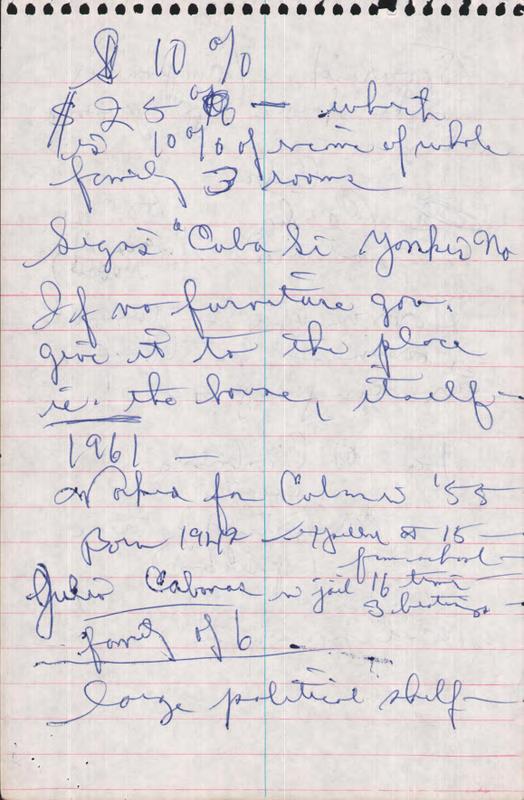 $ 10%
$ 25 — which
is 10% of income of whole
family 3 rooms
Signs "Cuba Si Yonkis No
If no furniture gov.
give it to the place
ie. the house, itself —
1961 —
Worked for '55
Born 1942 — expelled at 15 —
from school —
Julio in jail 16 times
3 beatings —
family of 6
large political shelf —